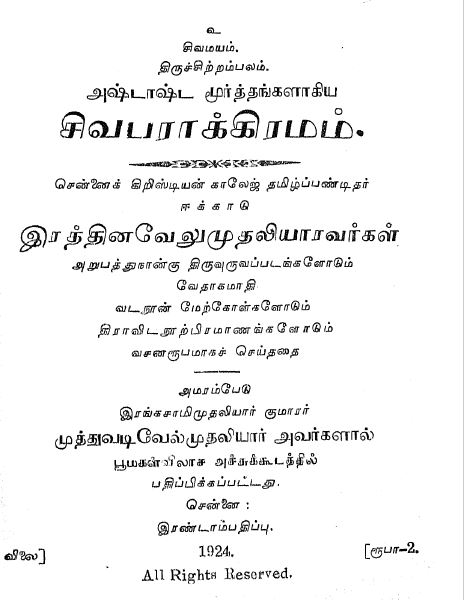 உ
சிவமயம்.
திருச்சிற்றம்பலம்.
அஷ்டாஷ்ட மூர்த்தங்களாகிய
சிவபராக்கிரமம்.
சென்னைக் கிறிஸ்டியன் காலேஜ் தமிழ்ப்பண்டிதர்
ஈக்காடு
இரத்தினவேலுமுதலியாரவர்கள்
அறுபத்துநான்கு திருவுருவப்படங்களோடும்
வேதாகமாதி
வடநூன் மேற்கோள்களோடும்
திராவிடநூற்பிரமாணங்களோடும்
வசனரூபமாகச் செய்ததை
அமரம்பேடு
இரங்கசாமிமுதலியார் குமாரர்
முத்துவடிவேல்முதலியார் அவர்களால்
பூமகள்விலாச அச்சுக்கூடத்தில்
பதிப்பிக்கப்பட்டது.
சென்னை :
இரண்டாம்பதிப்பு.
விலை] 1924. [ரூபா-2.
All Rights Reserved.